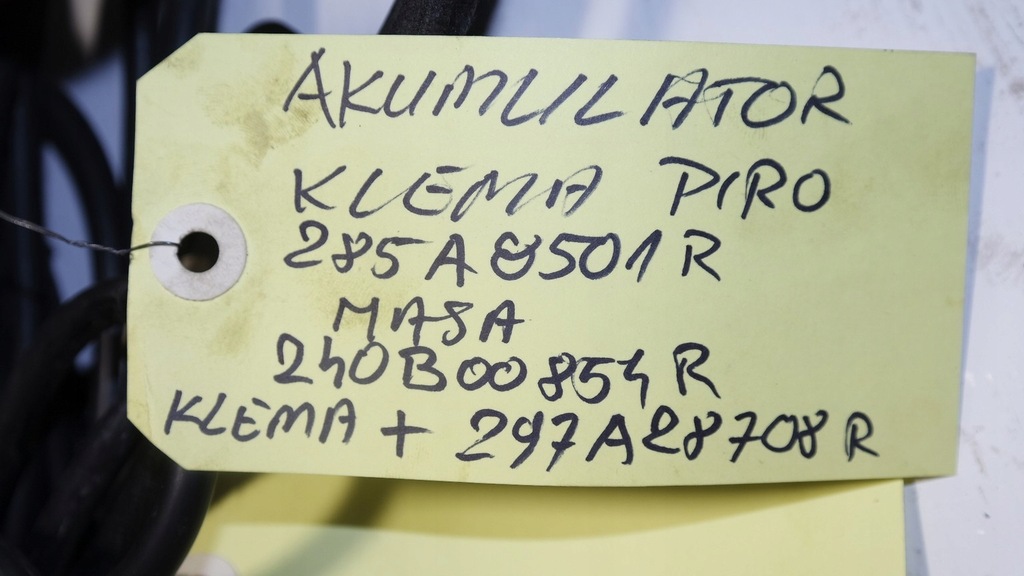 AKUMULATOR
KLEMA PIRO
285A8501R
MASA
240B00854R
KLEMA + 297A28708R